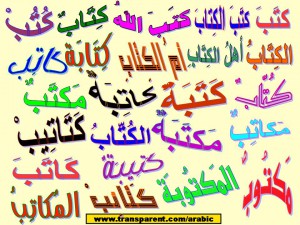 كَتَبَ كَتَبَ الكِتَابَ كَتَبَ اللهُ كِتَابٌ كُتُبٌ
الكِتَابُ أهلُ الكِتَابِ أم الكتاب كِتَابَة كاتِبٌ
كُتَّابٌ كَتَبَة كاتِبَةٌ مَكتَبٌ
مَكَاتِبٌ مَكتَبَةٌ الكُتَّابُ كَتَاتِيبٌ
كتيبة كَاتَبَ
مَكتُوبٌ المكتوبة المكاتب
www.transparent.com/arabic